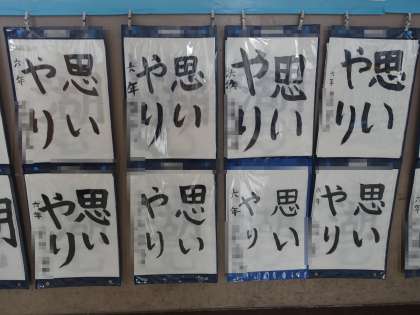 思い
やり
六年
思い
やり
六年
思い
やり
六年
思い
やり
六年
思い
やり
六年
思い
やり
六年
思い
やり
六年
思い
やり
六年